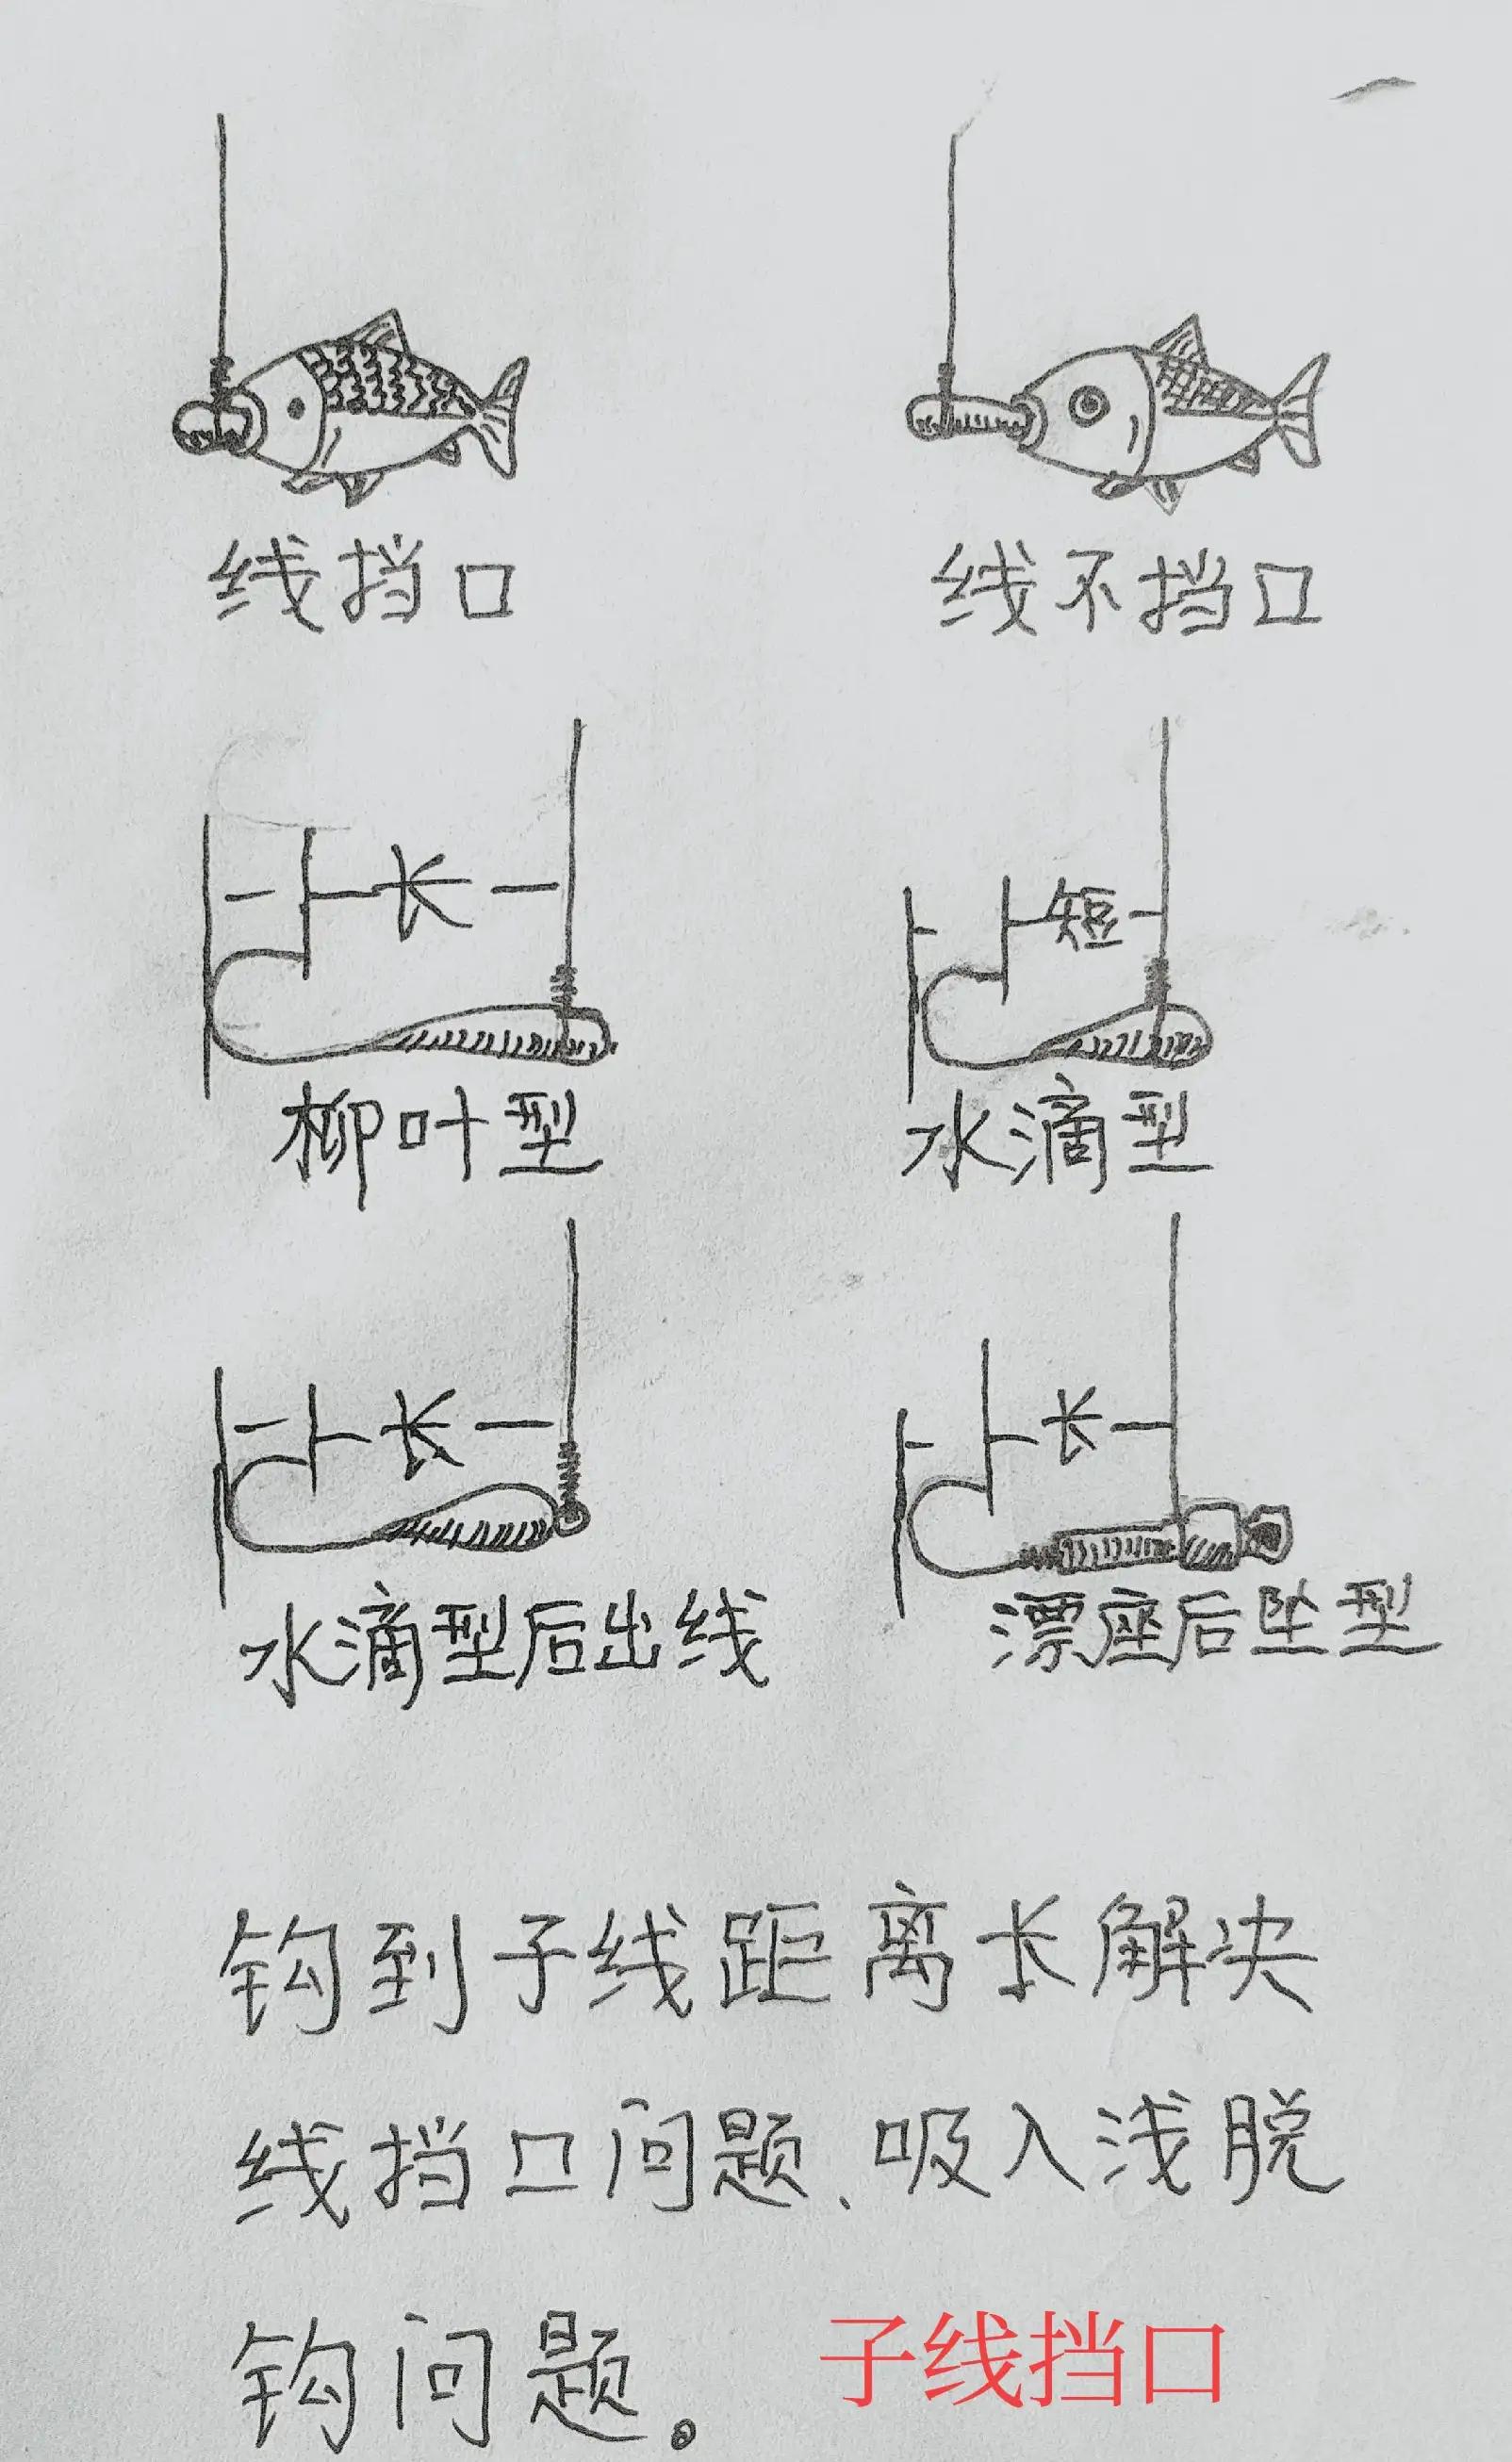 线挡口
线不挡口
长
短
柳叶型
水滴型
长
长
水滴型后出线
漂座后坠型
钩到子线距离长解决
线挡口问题、吸入浅脱
钩问题。
子线挡口